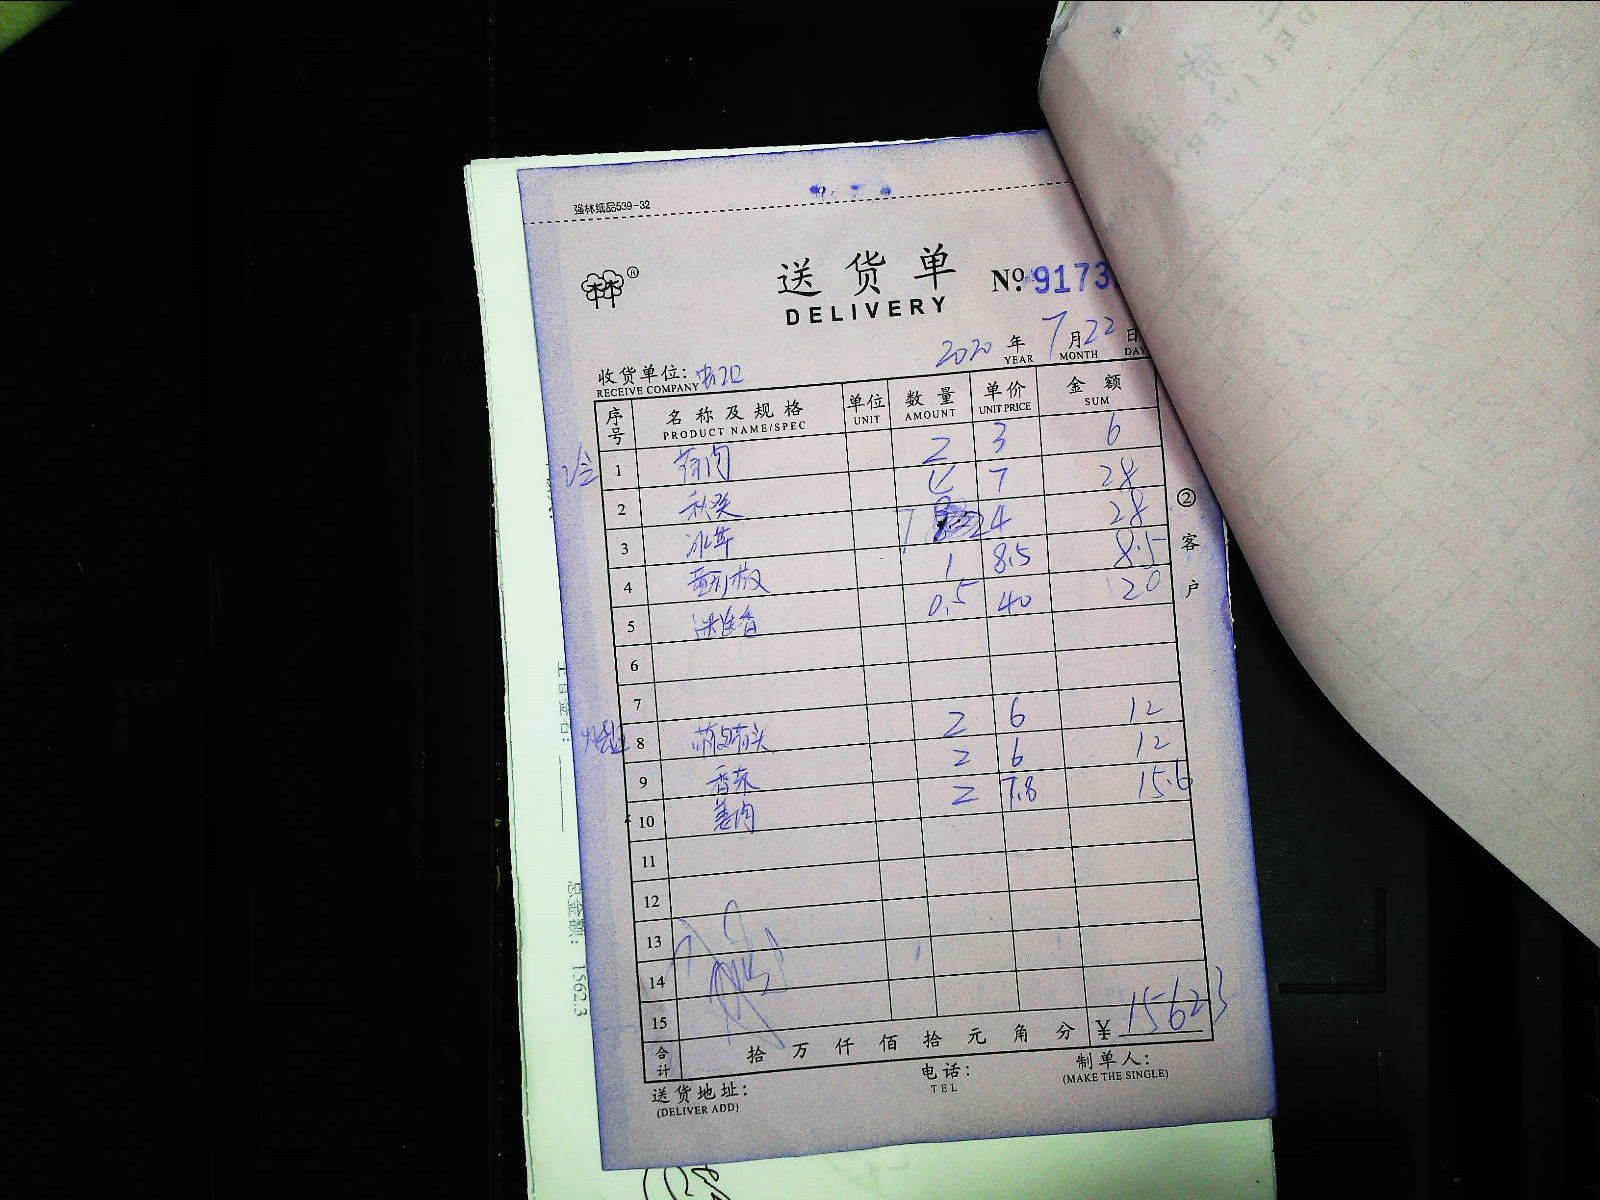 强林纸品539-32
送货单
DELIVERY
№ 9173
2020 年 7 月 22 日
YEAR MONTH DAY
收货单位:
RECEIVE COMPANY
序号 名称及规格 单位 数量 单价 金额
PRODUCT NAME/SPEC UNIT AMOUNT UNIT PRICE SUM
1 2 3 6
2 秋葵 7 28
3 冰草 7 4 28
4 1 8.5 8.5
5 0.5 40 20
6
7
8 2 6 12
9 香菜 2 6 12
10 姜肉 2 7.8 15.6
11
12
13
14
15
合计 拾 万 仟 佰 拾 元 角 分 ¥ 1562.3
送货地址: 电话: 制单人:
(DELIVER ADD) TEL (MAKE THE SINGLE)
② 客户
总金额: 1562.3